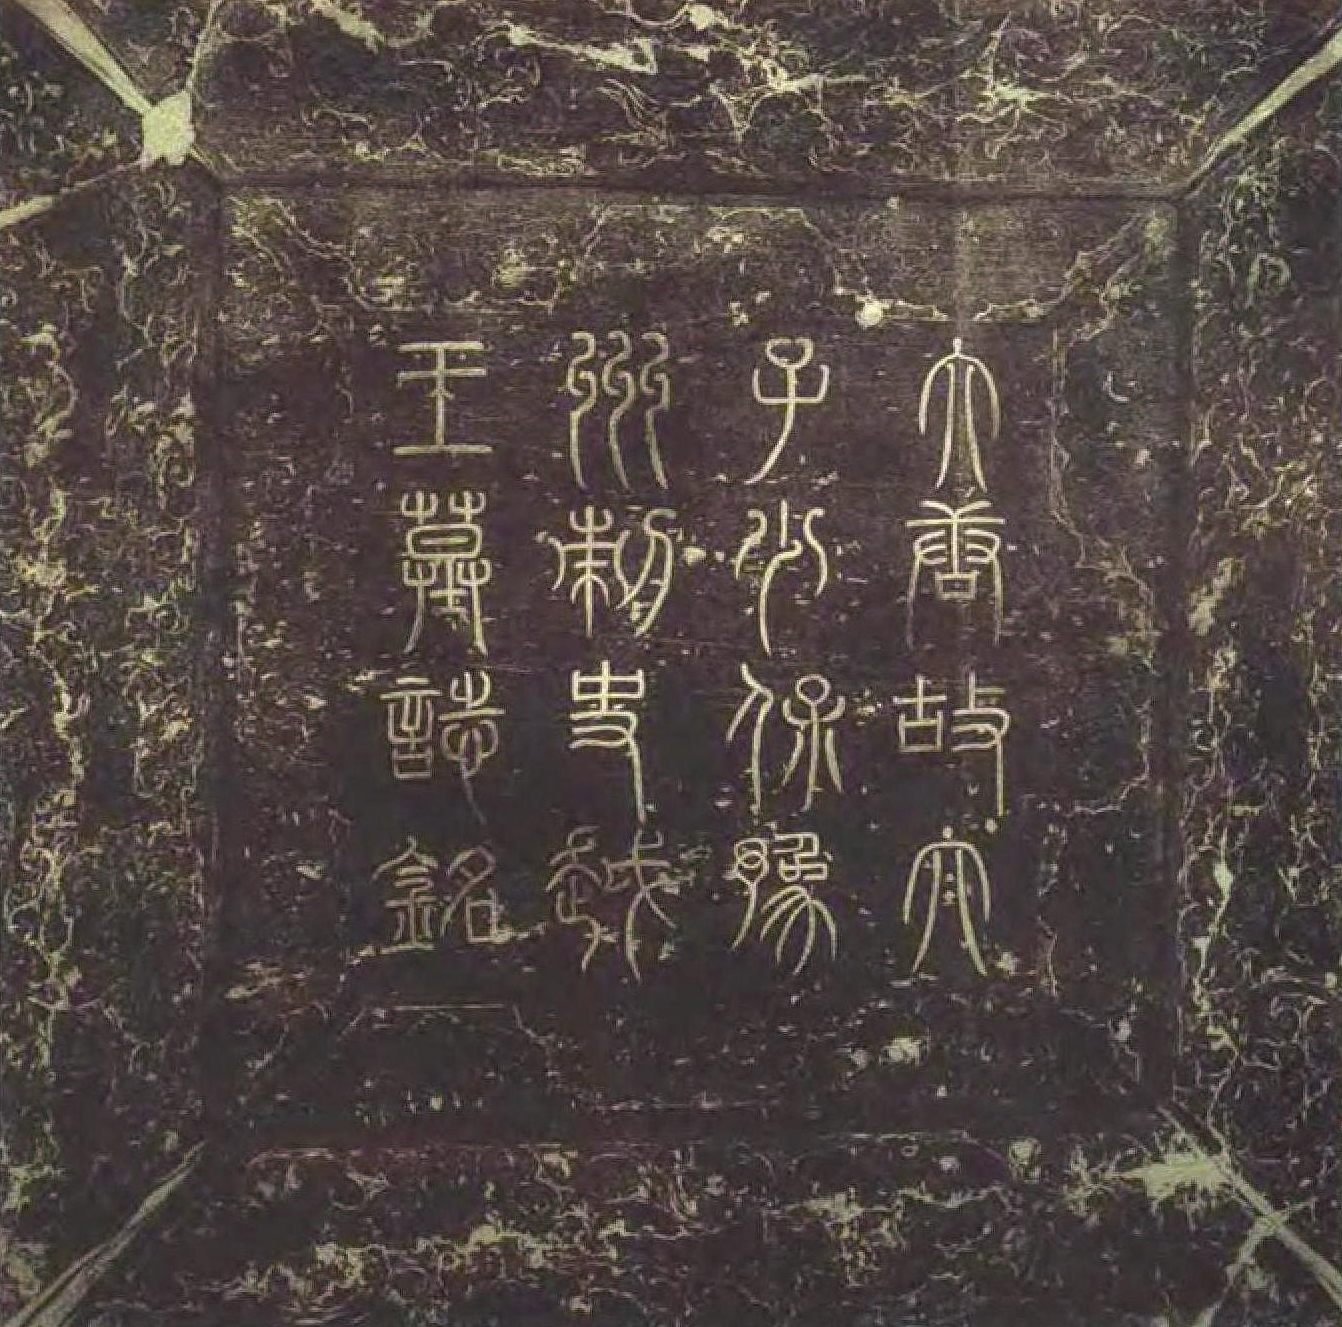 大唐故太
子少保豫
州刺史越
王墓誌銘